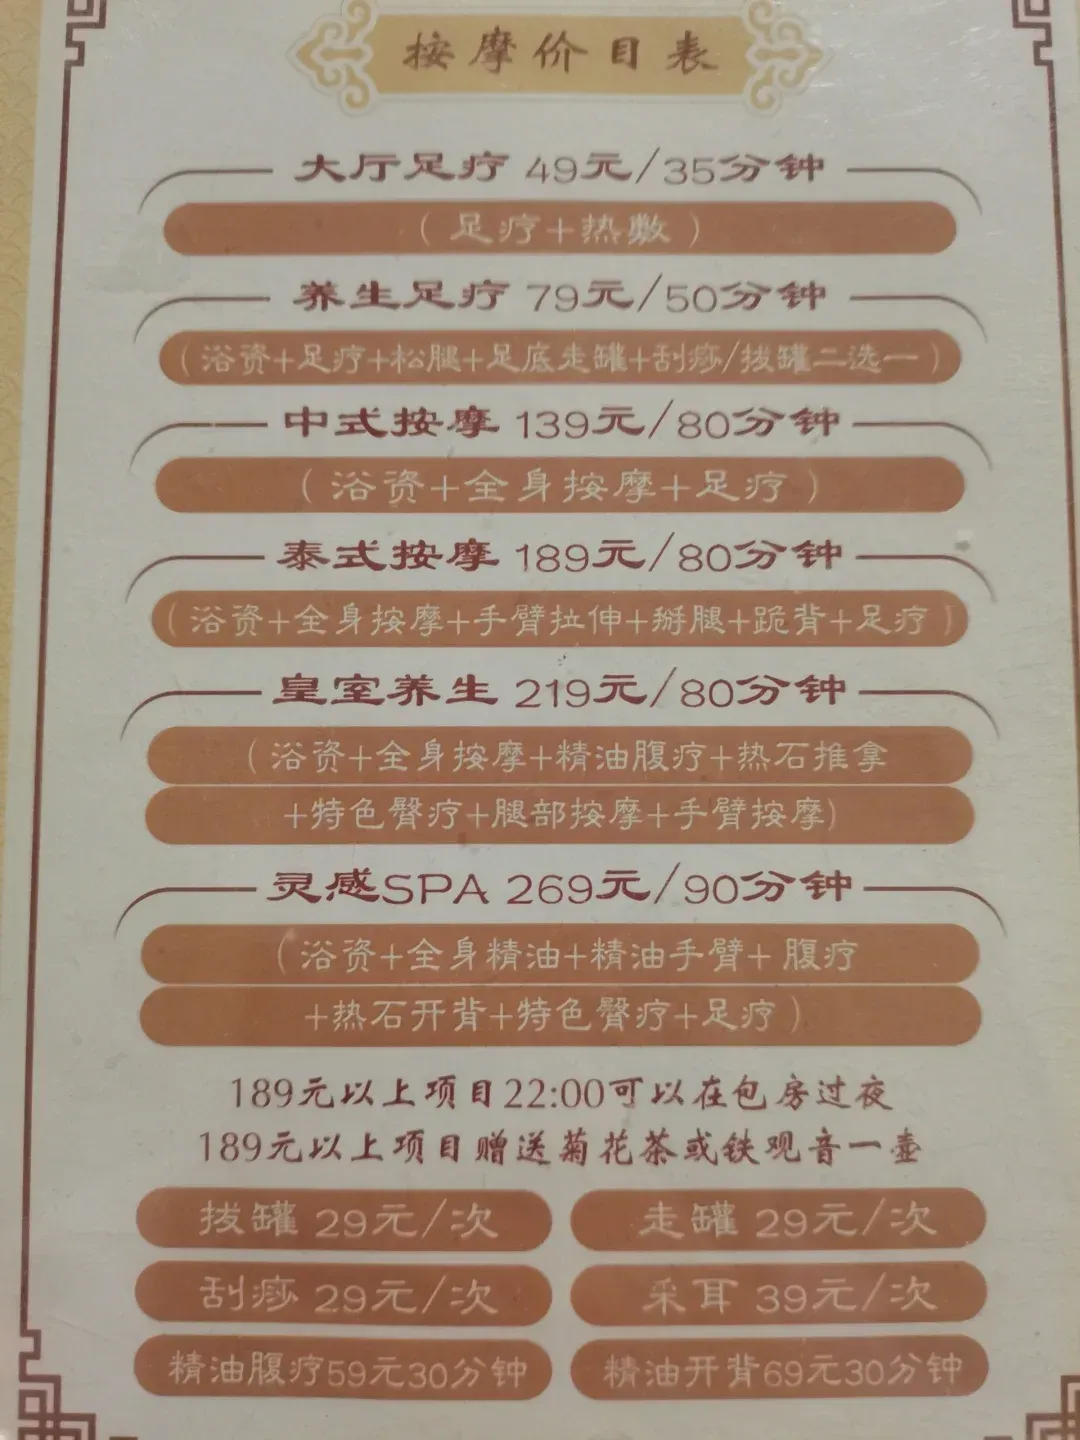 按摩价目表
大厅足疗 49元/35分钟
（足疗+热敷）
养生足疗 79元/50分钟
（浴资+足疗+松腿+足底走罐+刮痧/拔罐二选一）
中式按摩 139元/80分钟
（浴资+全身按摩+足疗）
泰式按摩 189元/80分钟
（浴资+全身按摩+手臂拉伸+掰腿+跪背+足疗）
皇室养生 219元/80分钟
（浴资+全身按摩+精油腹疗+热石推拿
+特色臀疗+腿部按摩+手臂按摩)
灵感SPA 269元/90分钟
（浴资+全身精油+精油手臂+ 腹疗
+热石开背+特色臀疗+足疗）
189元以上项目22:00可以在包房过夜
189元以上项目赠送菊花茶或铁观音一壶
拔罐 29元/次
走罐 29元/次
刮痧 29元/次
采耳 39元/次
精油腹疗59元30分钟
精油开背69元30分钟